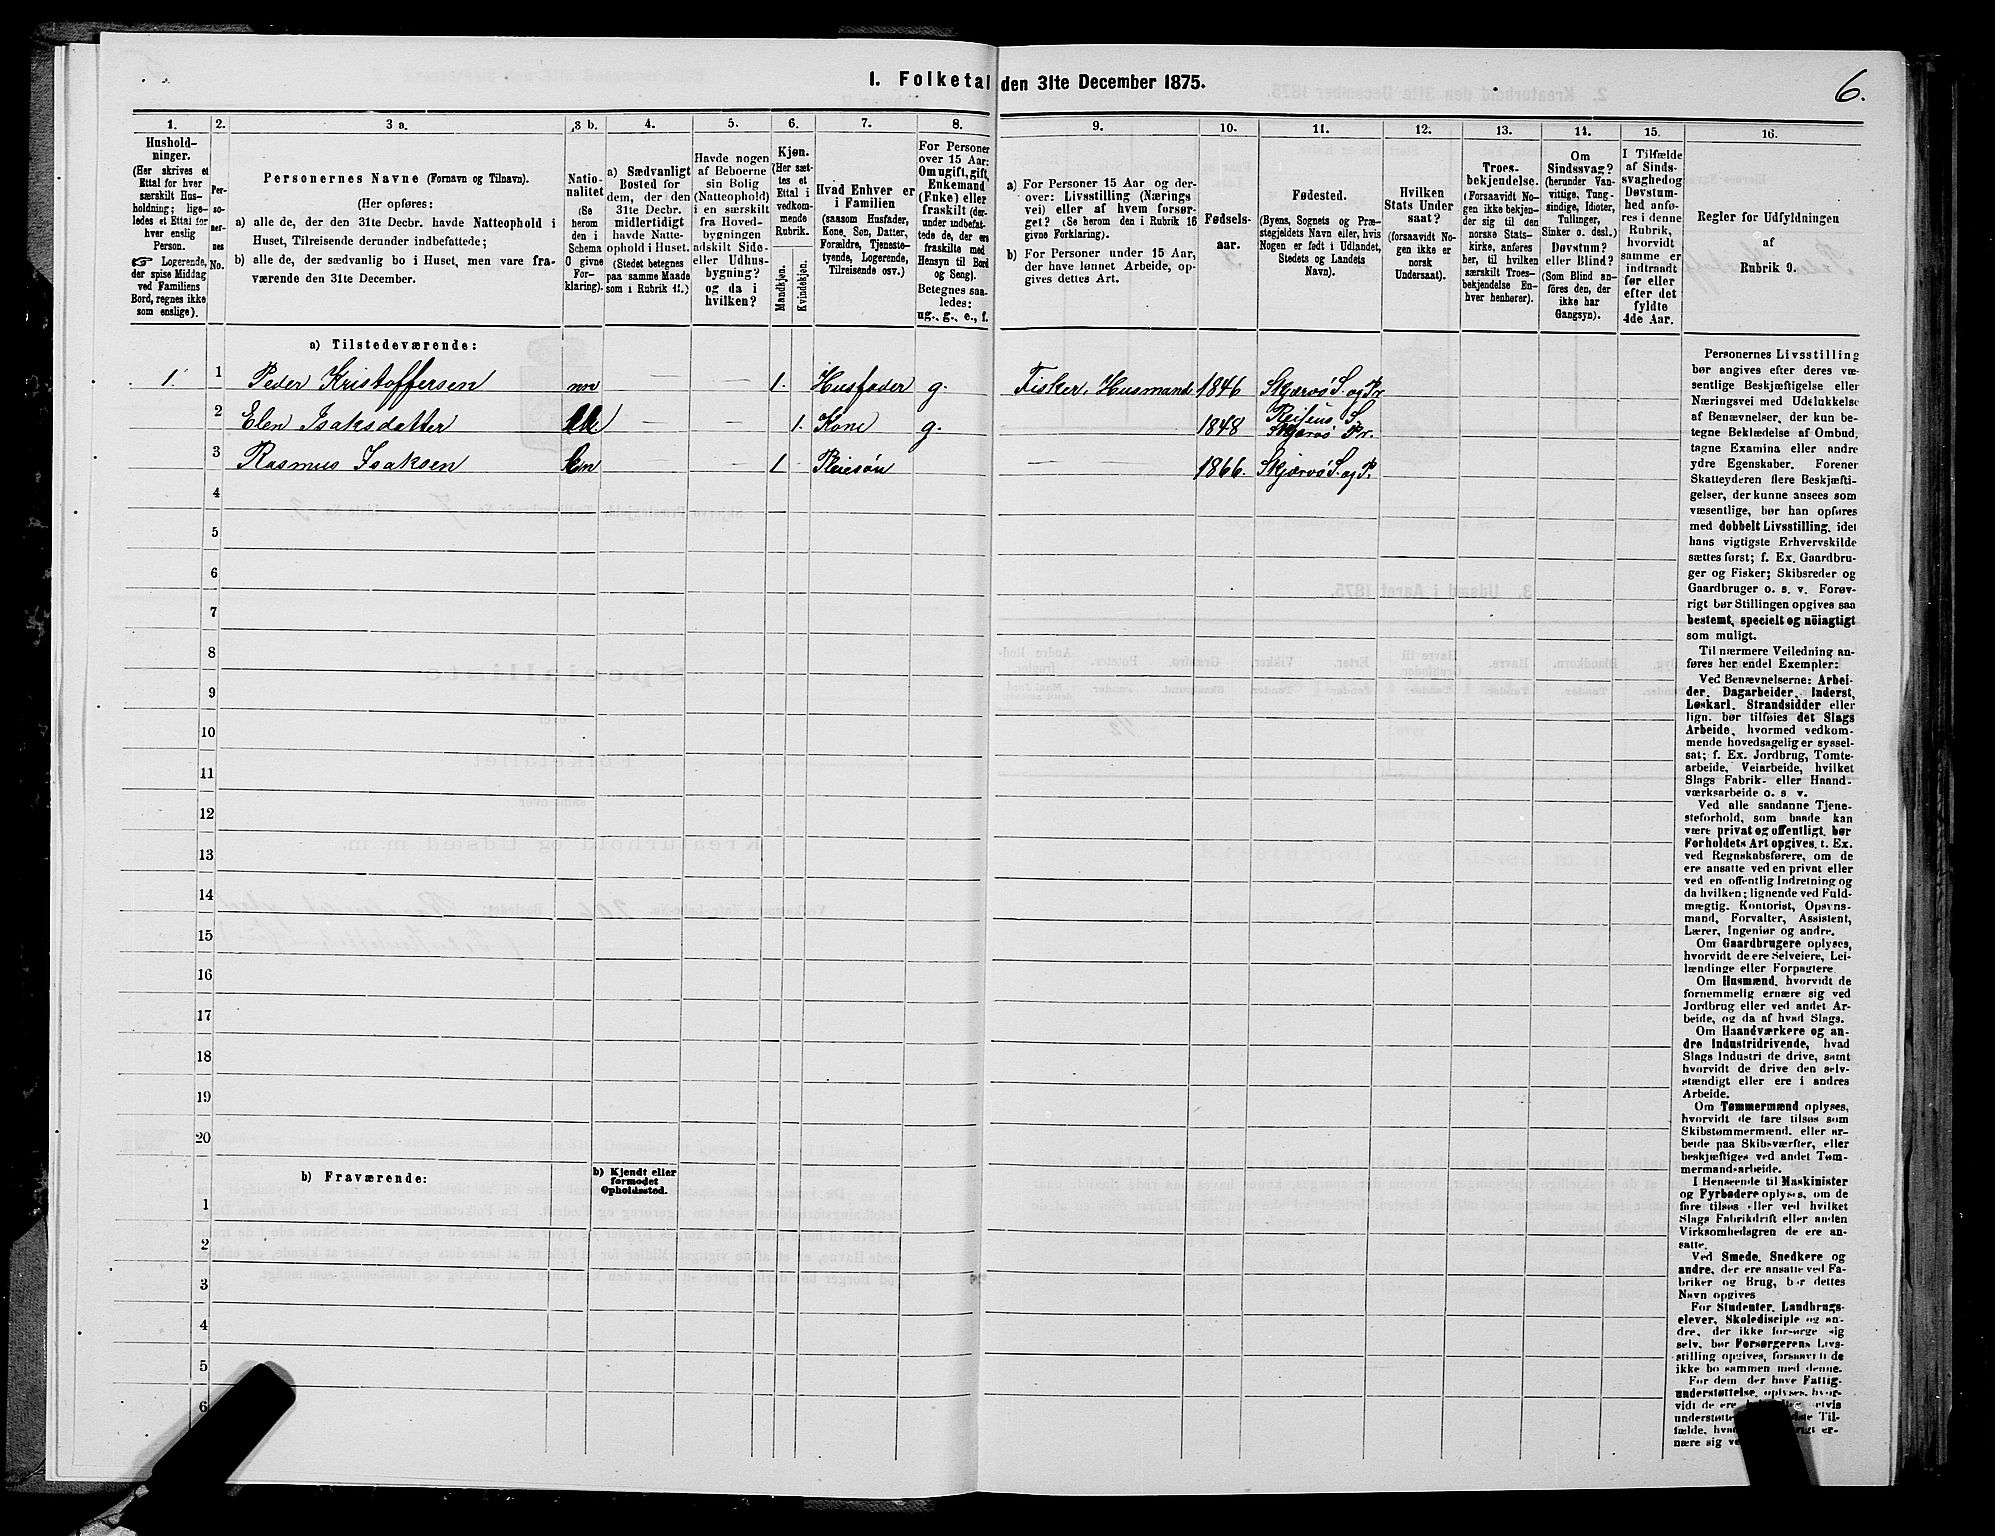 1. Folketal den 31te December 1875.
6.
1.
2.
3 a.
3 b.
4.
5.
6.
7.
8.
9.
10.
11.
12.
13.
14.
15.
16.
Hushold-
ninger.
(Her skrives et
Ettal for hver
særskilt Hus-
holdning; lige-
ledes et Ettal for
hver enslig
Person.
☞ Logerende,
der spise Middag
ved Familiens
Bord, regnes ikke
som enslige).
Per-
so-
ner-
nes
No.
Personernes Navne (Fornavn og Tilnavn).
(Her opføres:
a) alle de, der den 31te Decbr. havde Natteophold i
Huset, Tilreisende derunder indbefattede;
b) alle de, der sædvanlig bo i Huset, men vare fra-
værende den 31te December.
Natio-
nalitet
(Se
herom
den i
Schema
O givne
For-
klaring).
a) Sædvanligt
Bosted for
dem, der den
31te Decbr.
havde midlertidigt
Natte-
ophold i Huset.
(Stedet betegnes
paa samme Maade
som i Rubrik 11.)
Havde nogen
af Beboerne
sin Bolig
(Natteophold)
i en særskilt
fra Hoved-
bygningen
adskilt Side-
eller Udhus-
bygning?
og da i
hvilken?
Kjøn.
(Her sæt-
tes et
Ettal i
vedkom-
mende
Rubrik.
Mandkjøn.
Kvindekjøn.
Hvad Enhver er
i Familien
(saasom Husfader,
Kone, Søn, Datter,
Forældre, Tjeneste-
tyende, Logerende,
Tilreisende osv.)
For Personer
over 15 Aar:
Om ugift, gift,
Enkemand
(Enke) eller
fraskilt (der-
under indbefat-
tede de, der ere
fraskille med
Hensyn til Bord
og Seng).
Betegnes saa-
ledes:
ug., g., e., f.
a) For Personer 15 Aar og der-
over: Livsstilling (Nærings
vei) eller af hvem forsør-
get? (Se herom den i Rubrik 16
givne Forklaring).
b) For Personer under 15 Aar,
der have lønnet Arbeide, op-
gives dettes Art.
Fødsels-
aar.
Fødested.
(Byens, Sognets og Præ-
stegjeldets Navn eller, hvis
Nogen er født i Udlandet,
Stedets og Landets
Navn).
Hvilken
Stats Under
saat?
(forsaavidt No-
gen ikke er
norsk
Undersaat).
Troes-
bekjendelse.
(Forsaavidt No-
gen ikke bekjen-
der sig til den
norske Stats-
kirke, anføres
her, til hvilken
særskilt Troes-
bekjendelse En-
hver henhører).
Om
Sindssvag?
(herunder Van-
vittige, Tung-
sindige, Idioter,
Tullinger,
Sinker o. desl.)
Døvstum?
eller Blind?
(Som Blind an-
føres den, der
ikke har
Gangsyn).
I Tilfælde
af Sinds-
svaghed og
Døvstum-
hed anfø-
res i denne
Rubrik,
hvorvidt
samme er
indtraadt
før eller
efter det
fyldte
4de Aar.
Regler for Udfyldningen
af
Rubrik 9.
a) Tilstedeværende:
1. 1 Peder Kristoffersen nn — — 1. Husfader g. Fisker, Husmand 1846 Skjærvö S. og Pr
2 Elen Isaksdatter — — 1. Kone g. 1848 Skjærvö Pr.
3 Rasmus Isaksen — — 1 Pleiesøn — 1866. Skjærvö S. og P.
4
5
6
7
8
9
10
11
12
13
14
15
16
17
18
19
20
b) Fraværende:
b) Kjendt eller
formodet
Opholdssted.
1
2
3
4
5
6
Personernes Livsstilling
bør angives efter deres væ-
sentlige Beskjæftigelse eller
Næringsvei med Udelukkelse
af Benævnelser, der kun be-
tegne Beklædelse af Ombud,
tagne Examina eller andre
ydre Egenskaber. Forener
Skatteyderen flere Beskjæfti-
gelser, der kunne ansees som
væsentlige, bør han opføres
med dobbelt Livsstilling, idet
hans vigtigste Erhvervskilde
sættes først; f. Ex. Gaardbru-
ger og Fisker; Skibsreder og
Gaardbruger o. s. v. Forøv-
rigt bør Stillingen opgives saa
bestemt, specielt og nöiagtigt
som muligt.
Til nærmere Veiledning an-
føres her endel Exempler:
Ved Benævnelserne: Arbei-
der, Dagarbeider, Inderst,
Løskarl, Strandsidder eller
lign. bør tilføies det Slags
Arbeide, hvormed vedkom-
mende hovedsagelig er syssel-
sat; f. Ex. Jordbrug, Tomte-
arbeide, Veiarbeide, hvilket
Slags Fabrik- eller Haand-
værksarbeide o. s. v.
Ved alle saadanne Tjene-
steforhold, som baade kan
være privat og offentligt, bør
Forholdets Art opgives, f. Ex.
ved Regnskabsførere, om de
ere ansatte ved en privat eller
ved en offentlig Indretning og
da hvilken; lignende ved Fuld-
mægtig, Kontorist, Opsyns-
mand, Forvalter, Assistent,
Lærer, Ingeniør og andre.
Om Gaardbrugere oplyses,
hvorvidt de ere Selveiere, Lei-
lændinge eller Forpagtere.
Om Husmænd, hvorvidt de
fornemmelig ernære sig ved
Jordbrug eller ved andet Ar-
beide, og da af hvad Slags.
Om Haandværkere og an-
dre Industridrivende, hvad
Slags Industri de drive, samt
hvorvidt de drive den selv-
stændigt eller ere i andres
Arbeide.
Om Tømmermænd oplyses,
hvorvidt de fare tilsøs som
Skibstømmermænd, eller ar-
beide paa Skibsværfter, eller
beskjæftiges ved andet Tøm-
mermandsarbeide.
I Henseende til Maskinister
og Fyrbødere oplyses, om de
fare tilsøs eller ved hvilket
Slags Fabrikdrift eller anden
Virksomhedsgren de ere an-
satte.
Ved Smede, Snedkere og
andre, der ere ansatte ved Fa-
briker og Brug, bør dettes
Navn opgives
For Studenter, Landbrugs-
elever, Skoledisciple og an-
dre, der ikke forsørge sig
selv, bør Forsørgerens Livs-
stilling opgives, forsaavidt de
ikke bo sammen med denne.
For dem, der have Fattig-
understøttelse, oplyses, hvor-
vidt de ere
understøtte Til-
fælde, er-
nære sig